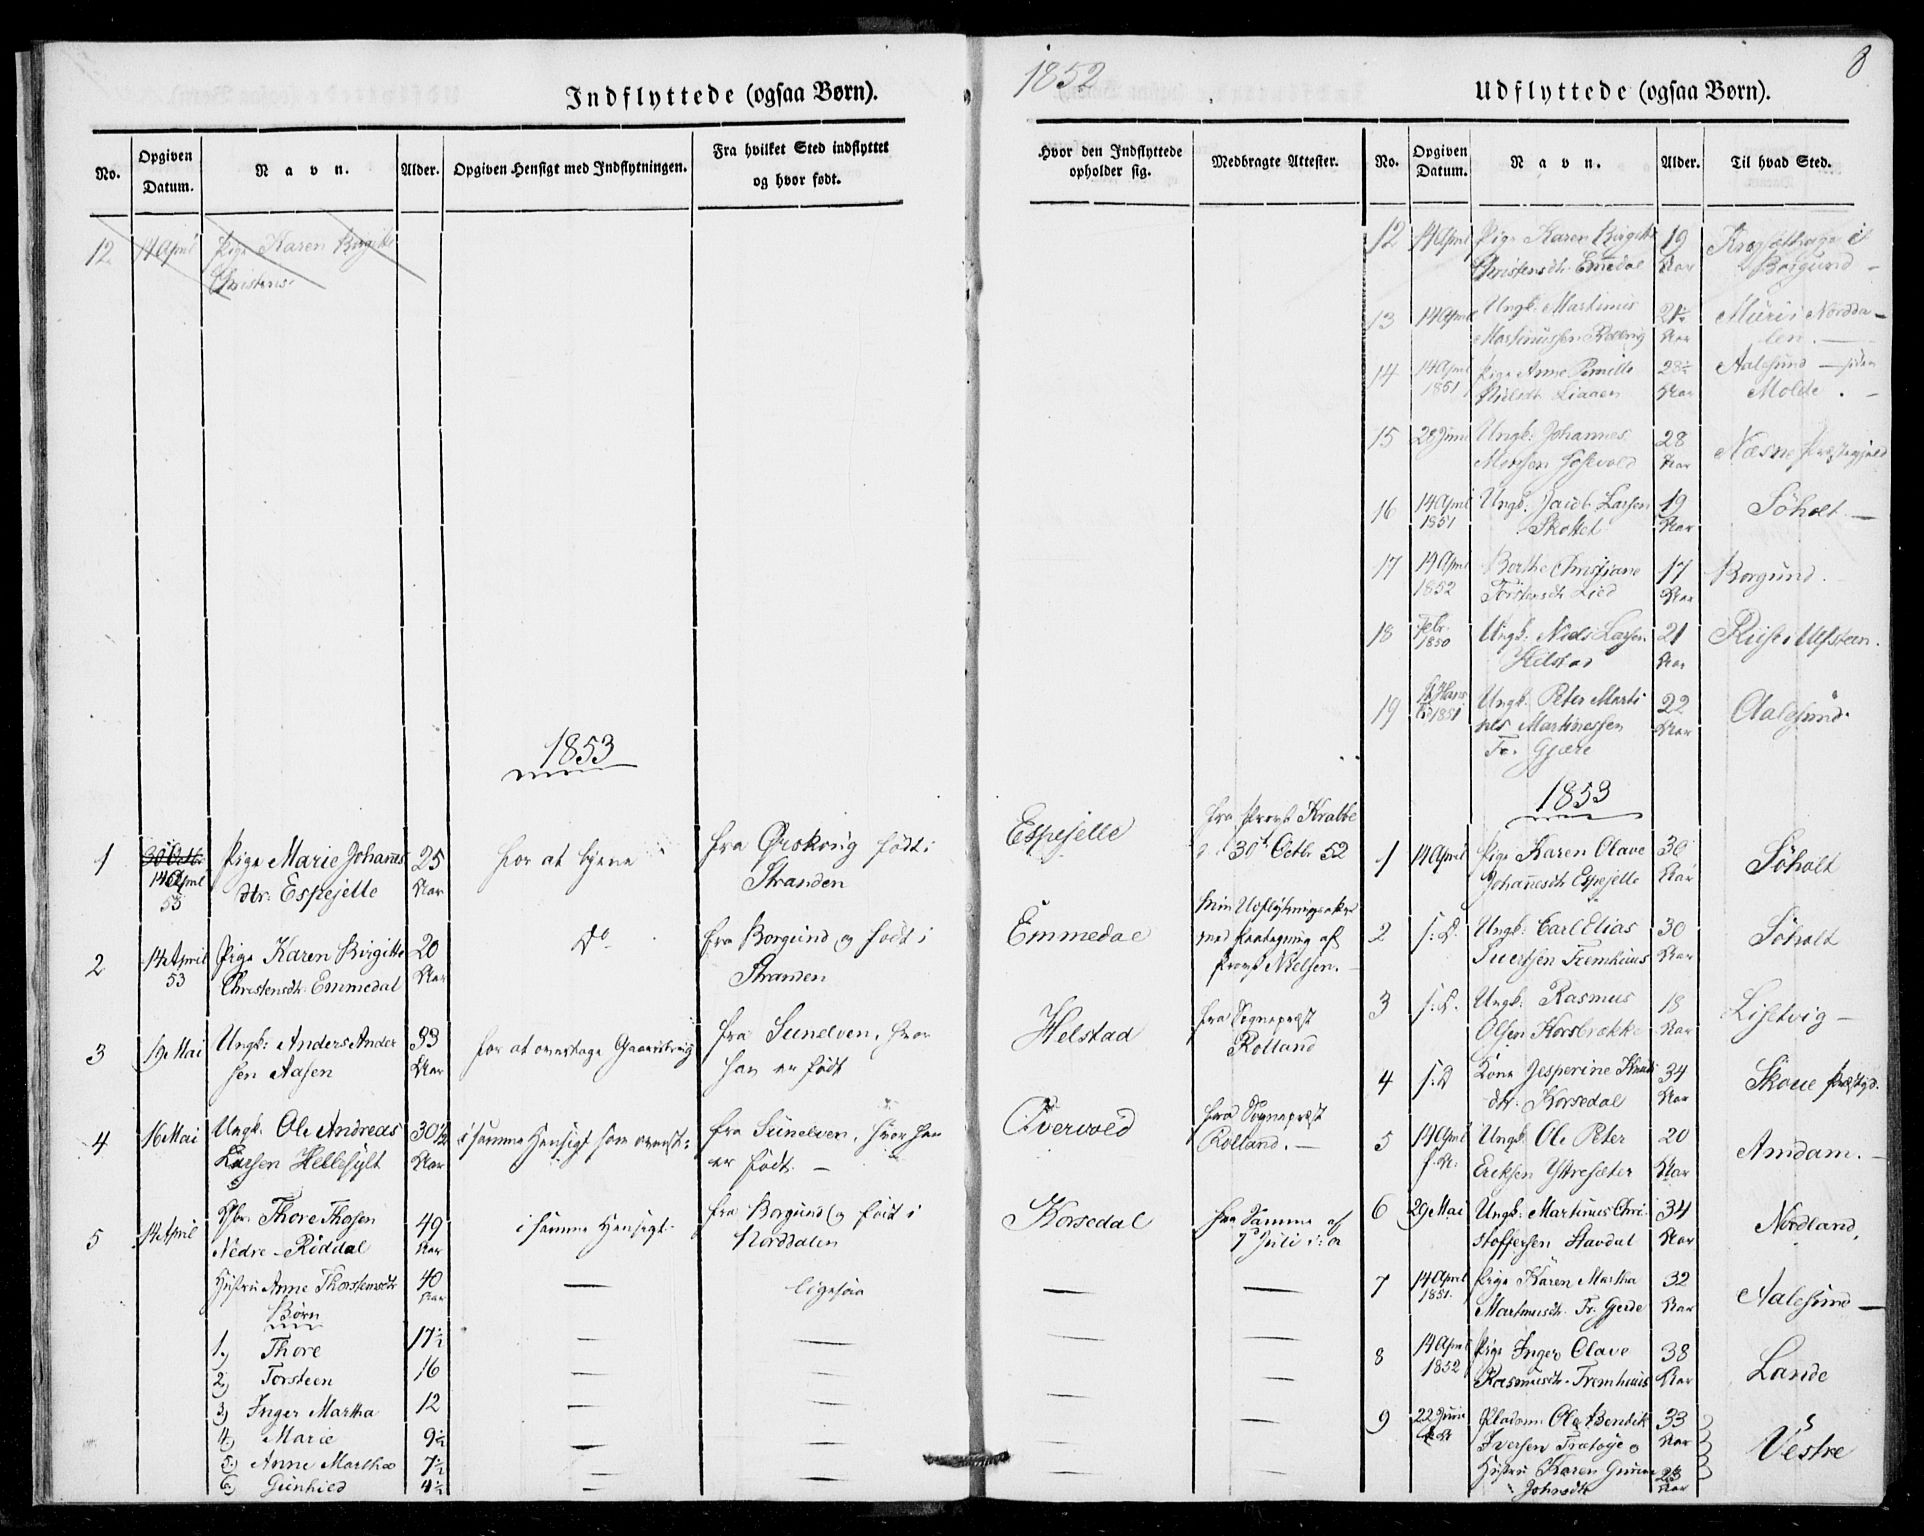 Indflyttede (ogsaa Børn).
No.
Opgiven Datum.
Navn.
Alder.
Opgiven Hensigt med Indflytningen.
Fra hvilket Sted indflyttet og hvor født.
12 14 April Pige Karen Birgitte
Christens
1853
1 30 Octbr 14 April 53 Pige Marie Johannes 25 for at tjene fra Ørskoug født i
dtr. Espejelle Aar Stranden
2 14 April 53 Pige Karen Birgitte 20 Do fra Borgund og født i
Christensdt. Emmedal Aar Stranden
3 19 Mai Ungk: Anders Ander 33 for at overtage Gaardbrug fra Sunelven, hvor
sen Aasen Aar han er født
4 16 Mai Ungk. Ole Andreas 30½ i samme Hensigt som ovenst: fra Sunelven, hvor han
Larsen Hellesylt Aar er født. —
5 14 April Thore Thosen 49 i samme Hensigt. fra Borgund og født i
Nedre-Röddal Aar Norddalen
Hustru Anne Thorstensdtr 40 — ligesaa
Aar
Børn
1) Thore 17½ — —
2) Torsteen 16 — —
3) Inger Martha 12 — —
4) Marie 9½ — —
5) Anne Martha 7½ — —
6) Gunhild 4½ — —
1852
Udflyttede (ogsaa Børn).
8
Hvor den Indflyttede opholder sig.
Medbragte Attester.
No.
Opgiven Datum.
Navn.
Alder.
Til hvad Sted.
Espejelle fra Provst Krabbe
30t Octbr 52
Emmedal Min Udflytningsattest
med Paategning af
Provst Nielsen. —
Helstad fra Sognepræst
Rolland
Overvold fra Sognepræst
Rolland. —
Korsedal fra Samme af
7 Juli
12 14 April Pige Karen Birgitte 19
Christensdt. Emedal Aar Borgund —
13 14 April Ungk. Martinus 21½ Muri i Nordda-
Martinussen Aar len. —
14 14 April 1851 Pige Anne Pernille 28½ Aalesund — siden
Nielsdt. Liaaen Aar Molde. —
15 28 Juni Ungk: Johannes 28 Næsne Præstegjeld
Aar
16 14 April 1851 Ungk. Jacob Larsen 19 Söholt —
Skottet Aar
17 14 April 1852 Berthe Christiane 17 Borgund.
Torstensdt Lied Aar
18 Febr. 1850 Ungk. Niels Larsen 21 Riise i Ulfsteen.
Helstad Aar
19 1851 Ungk. Peter Marti 22 Aalesund.
nus Martinussen Aar
Fr. Gjære
1853
1 14 April Pige Karen Olave 30 Söholt
Johannesdt Espejelle Aar
2 s: D. Ungk: Carl Elias 30 Söholt
Sivertsen Fremhuus Aar
3 s: D. Ungk: Rasmus 18
Olsen Korsbrække Aar
4 s: D Kone Jesperine Knuds 34 Skoue Præstgd.
dtr. Korsedal Aar
5 14 April Ungk. Ole Peter 20 Amdam. —
Eriksen Yttresæter Aar
6 29 Mai Ungk. Martinus Chri- 34 Nordland,
stoffersen Stavdal Aar
7 14 April 1851. Pige Karen Martha 32 Aalesund —
Martinusdt. Fr. Gjerde Aar
8 14 April 1852 Pige Inger Olave 38 Lande
Rasmusdt. Fremhuus Aar
9 22 Juni Pladsm. Ole Bendik 33 Vestre
Iversen Aar
Hustru Karen 23
Johnsdt Aar